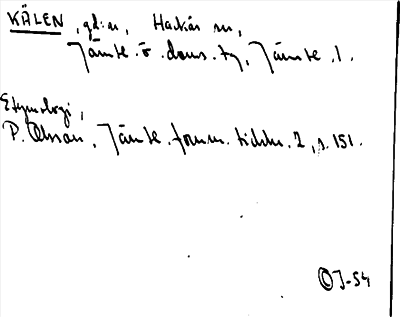 KÄLEN, gd:n, Hackås sn,
Jämtl. ö. doms. tg, Jämtl. l.
Etymologi,
P. Olsson, Jämtl. fornm. tidskr. 2, s. 151.
©J-54